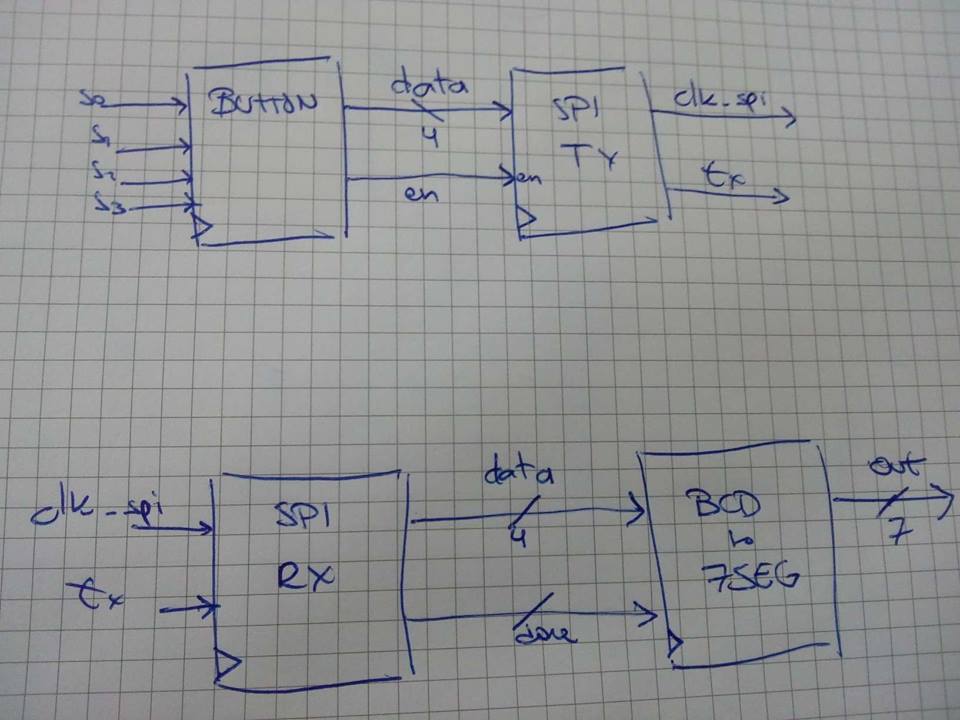 S0
S1
S2
S3
BUTTON
data
4
en
SPI
TX
en
clk_spi
tx
clk_spi
tx
SPI
RX
data
4
done
BCD
to
7SEG
out
7